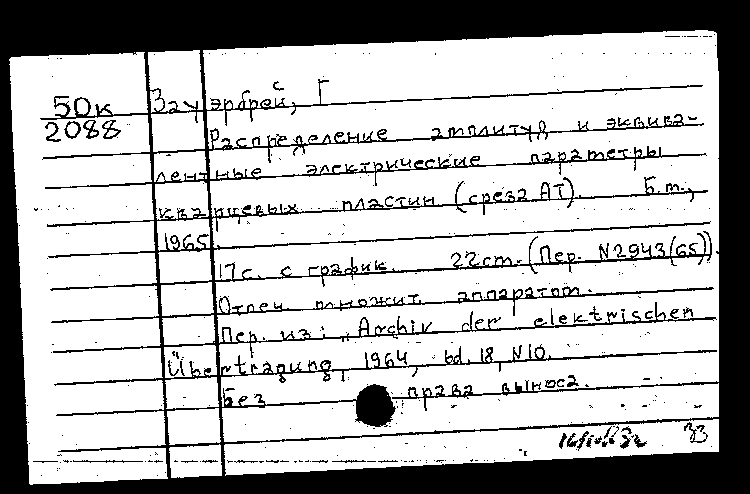 50к
2088
Зауэрбрей, Г
Распределение амплитуд и эквива-
лентные электрические параметры
кварцевых пластин (среза АТ). Б.м.,
1965.
17с. с график. 22см. (Пер. N2943(65)).
Отпеч. множит. аппаратом.
Пер. из: „Archiv der elektrischen
Übertragung, 1964, bd. 18, N10.
Без права выноса.
33